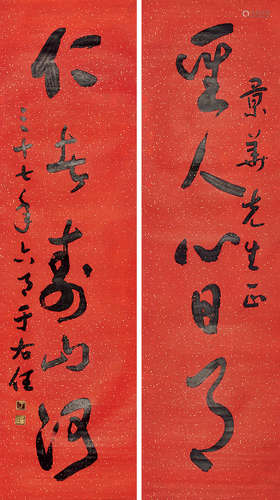 景华先生正
圣人心日月
仁者寿山河
三十七年六月 于右任